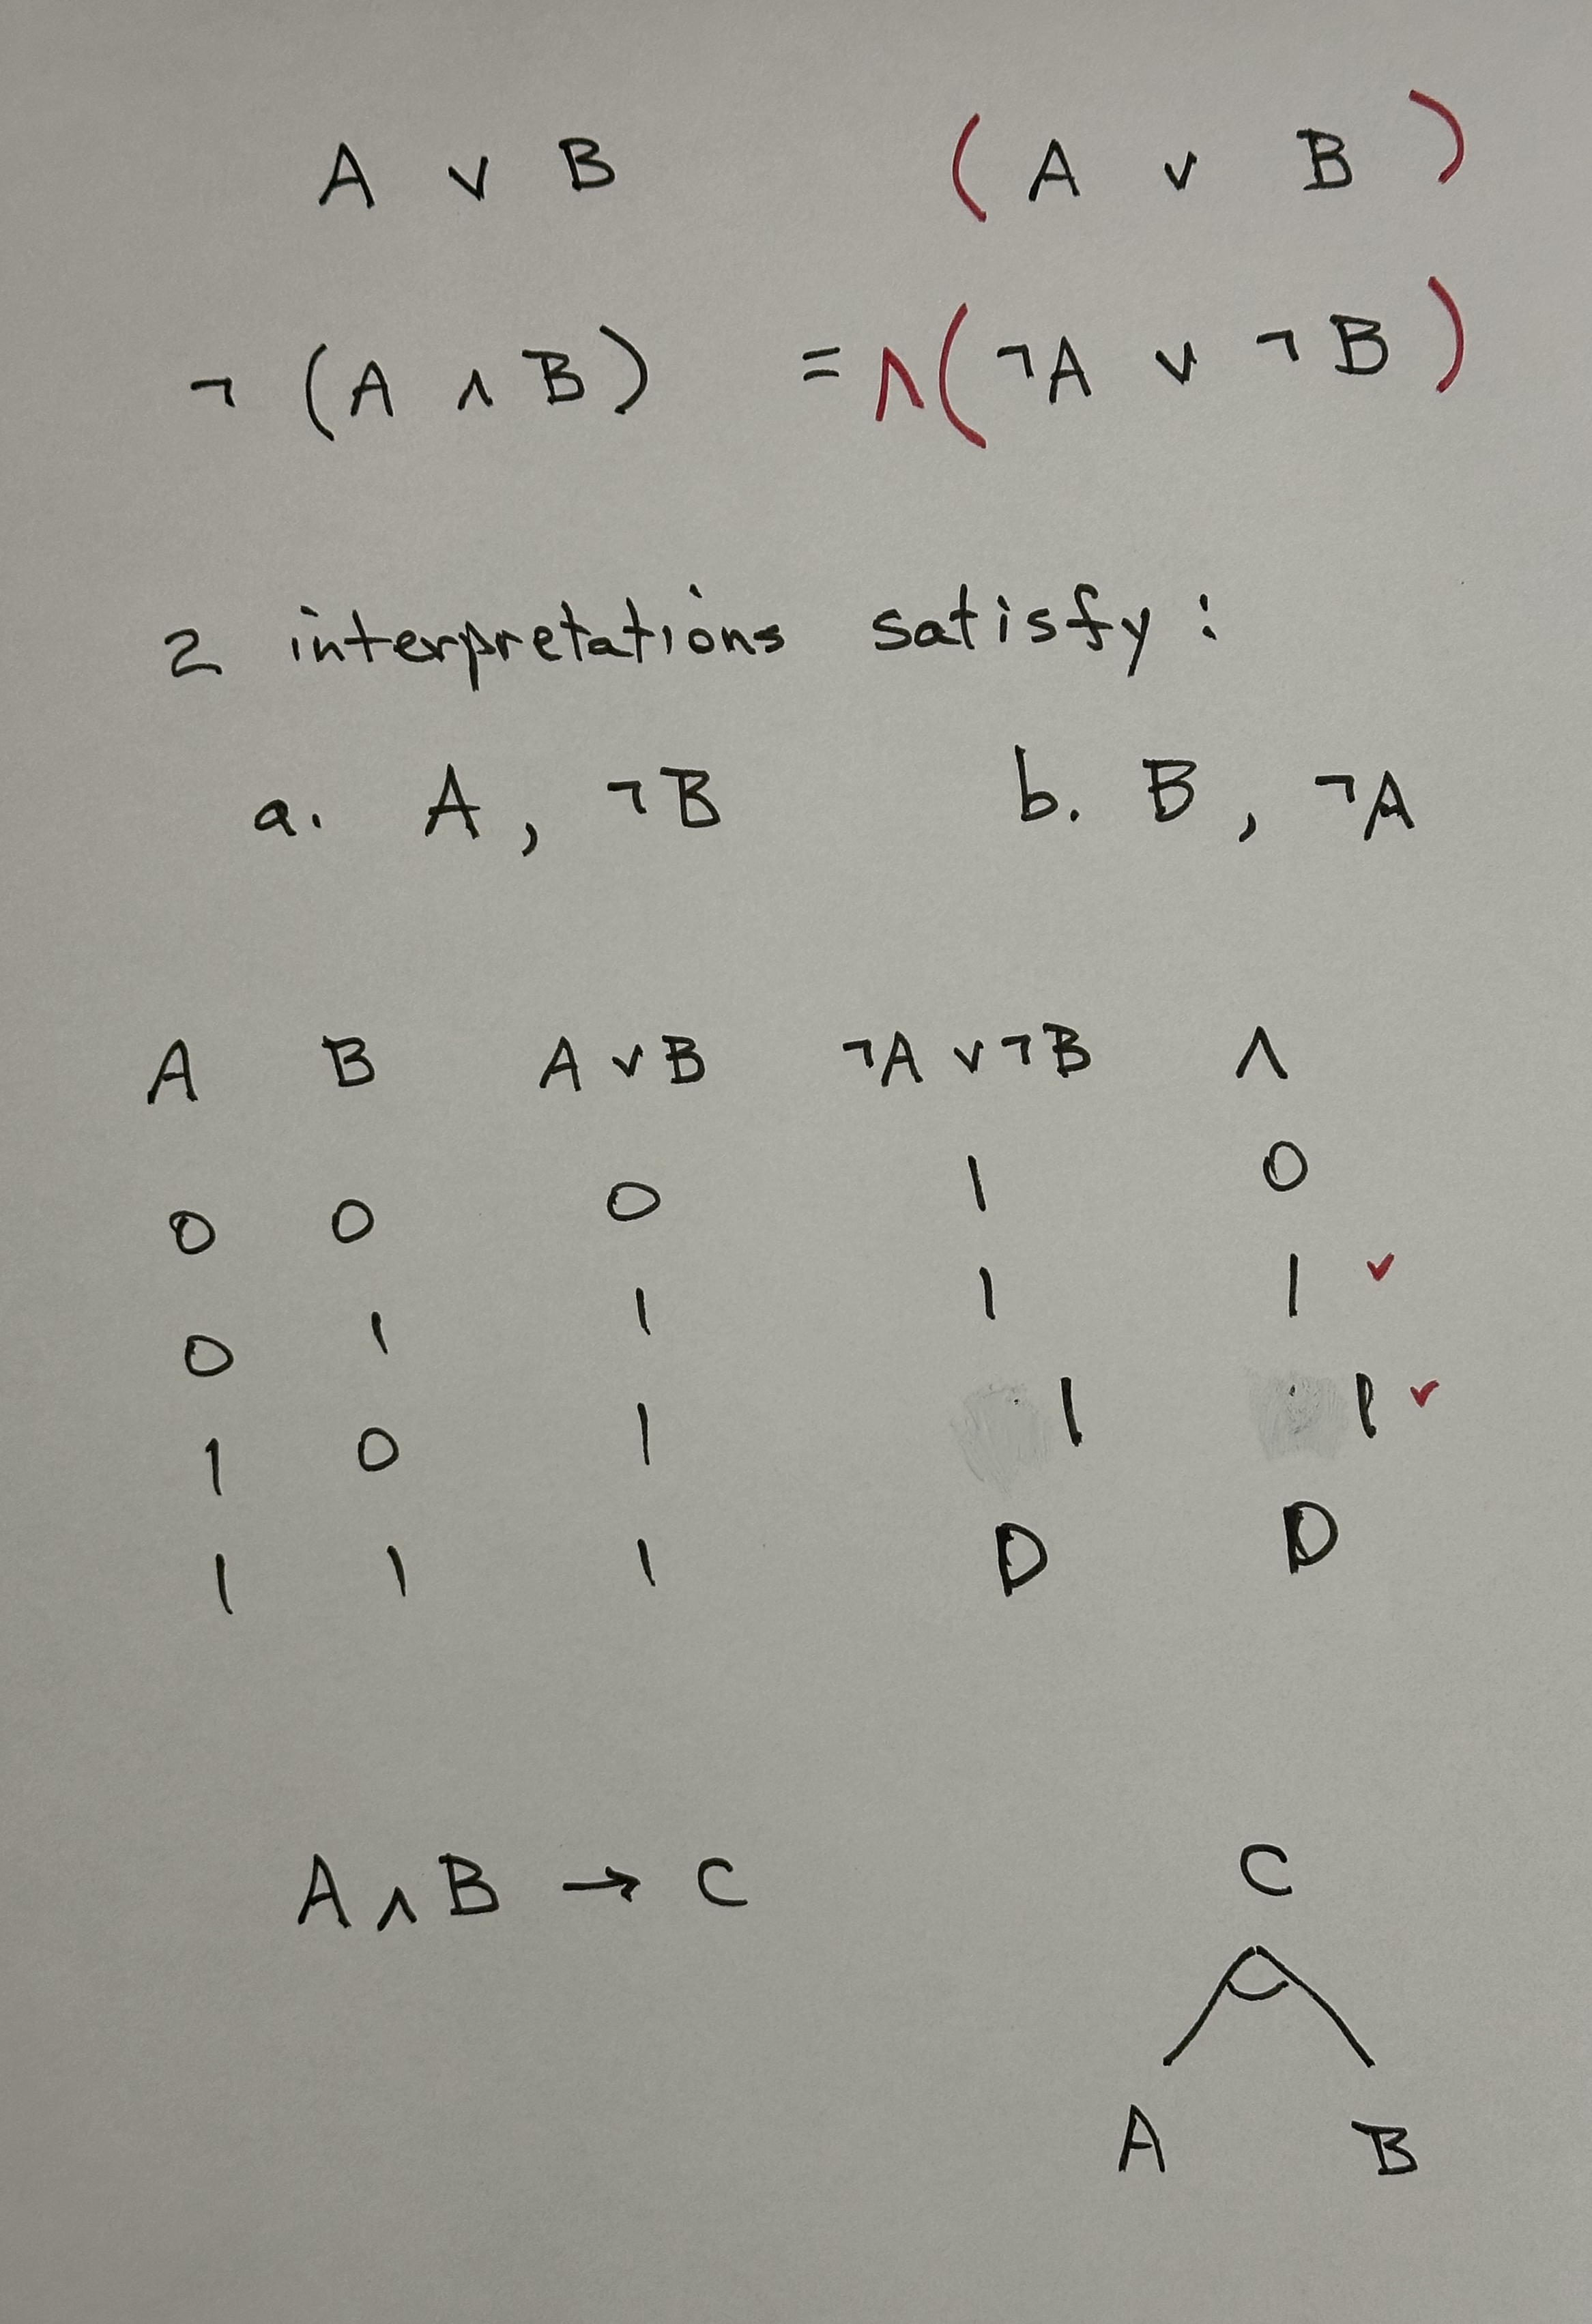 A ∨ B (A ∨ B)
¬ (A ∧ B) = ∧(¬A ∨ ¬B)
2 interpretations satisfy:
a. A, ¬B b. B, ¬A
A B A ∨ B ¬A ∨ ¬B ∧
0 0 0 1 0
0 1 1 1 1 ✓
1 0 1 1 1 ✓
1 1 1 0 0
A ∧ B → C C
A B